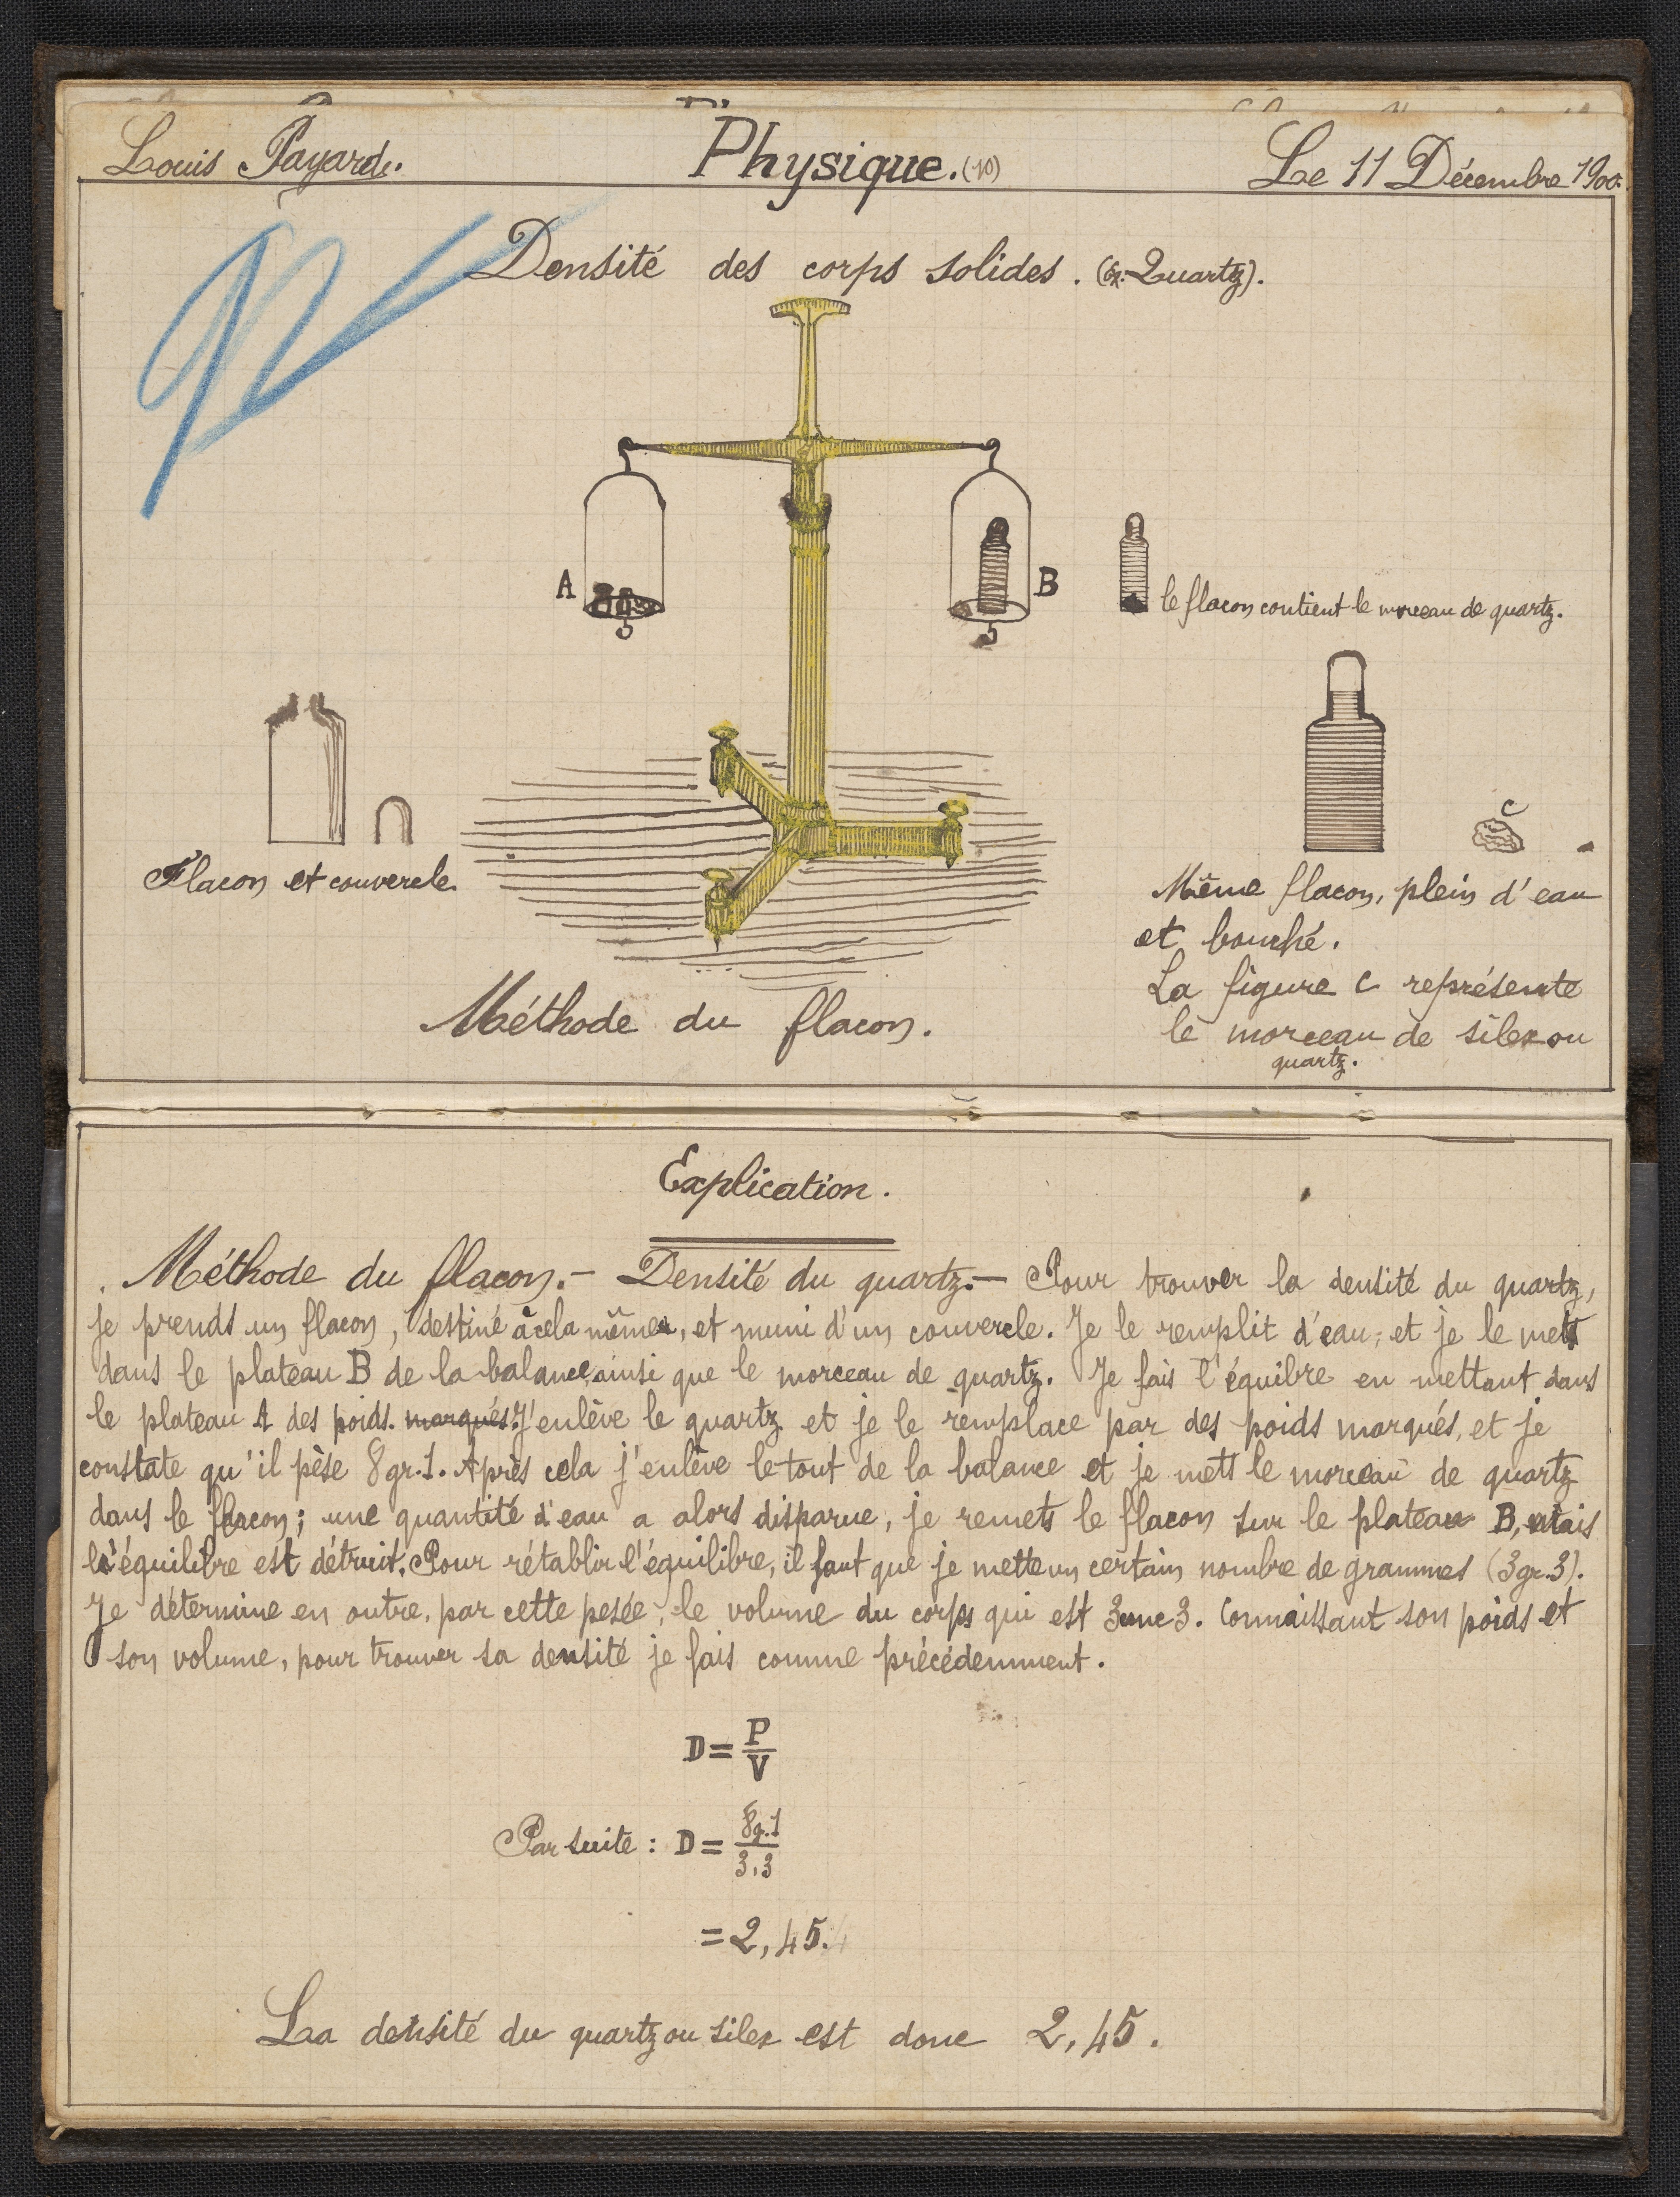 Louis Payard.
Physique. (10)
Le 11 Décembre 1900.
Densité des corps solides. (Ex: Quartz).
A
B
le flacon contient le morceau de quartz.
C
Flacon et couvercle.
Même flacon, plein d'eau
et bouché.
La figure C représente
le morceau de silex ou
quartz.
Méthode du flacon.
Explication.
Méthode du flacon.- Densité du quartz.- Pour trouver la densité du quartz,
je prends un flacon, destiné à cela même, et muni d'un couvercle. Je le remplit d'eau, et je le mets
dans le plateau B de la balance, ainsi que le morceau de quartz. Je fais l'équilbre en mettant dans
le plateau A des poids. marqués. J'enlève le quartz et je le remplace par des poids marqués, et je
constate qu'il pèse 8gr.1. Après cela j'enlève le tout de la balance et je mets le morceau de quartz
dans le flacon; une quantité d'eau a alors disparue, je remets le flacon sur le plateau B, mais
l'équilibre est détruit. Pour rétablir l'équilibre, il faut que je mette un certain nombre de grammes (3gr.3).
Je détermine en outre, par cette pesée, le volume du corps qui est 3cmc3. Connaissant son poids et
son volume, pour trouver sa densité je fais comme précédemment.
D = P/V
Par suite : D = 8g.1/3,3
= 2,45.
La densité du quartz ou silex est donc 2,45.